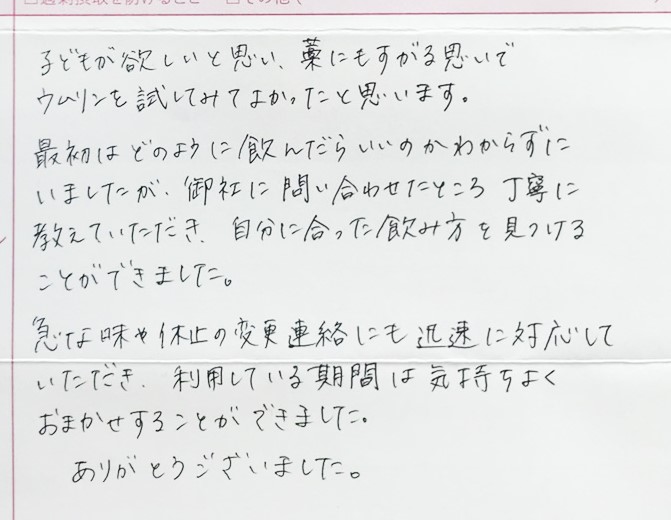 子どもが欲しいと思い、藁にもすがる思いで
ウムリンを試してみてよかったと思います。
最初はどのように飲んだらいいのかわからずに
いましたが、御社に問い合わせたところ丁寧に
教えていただき、自分に合った飲み方を見つける
ことができました。
急な味や休止の変更連絡にも迅速に対応して
いただき、利用している期間は気持ちよく
おまかせすることができました。
ありがとうございました。